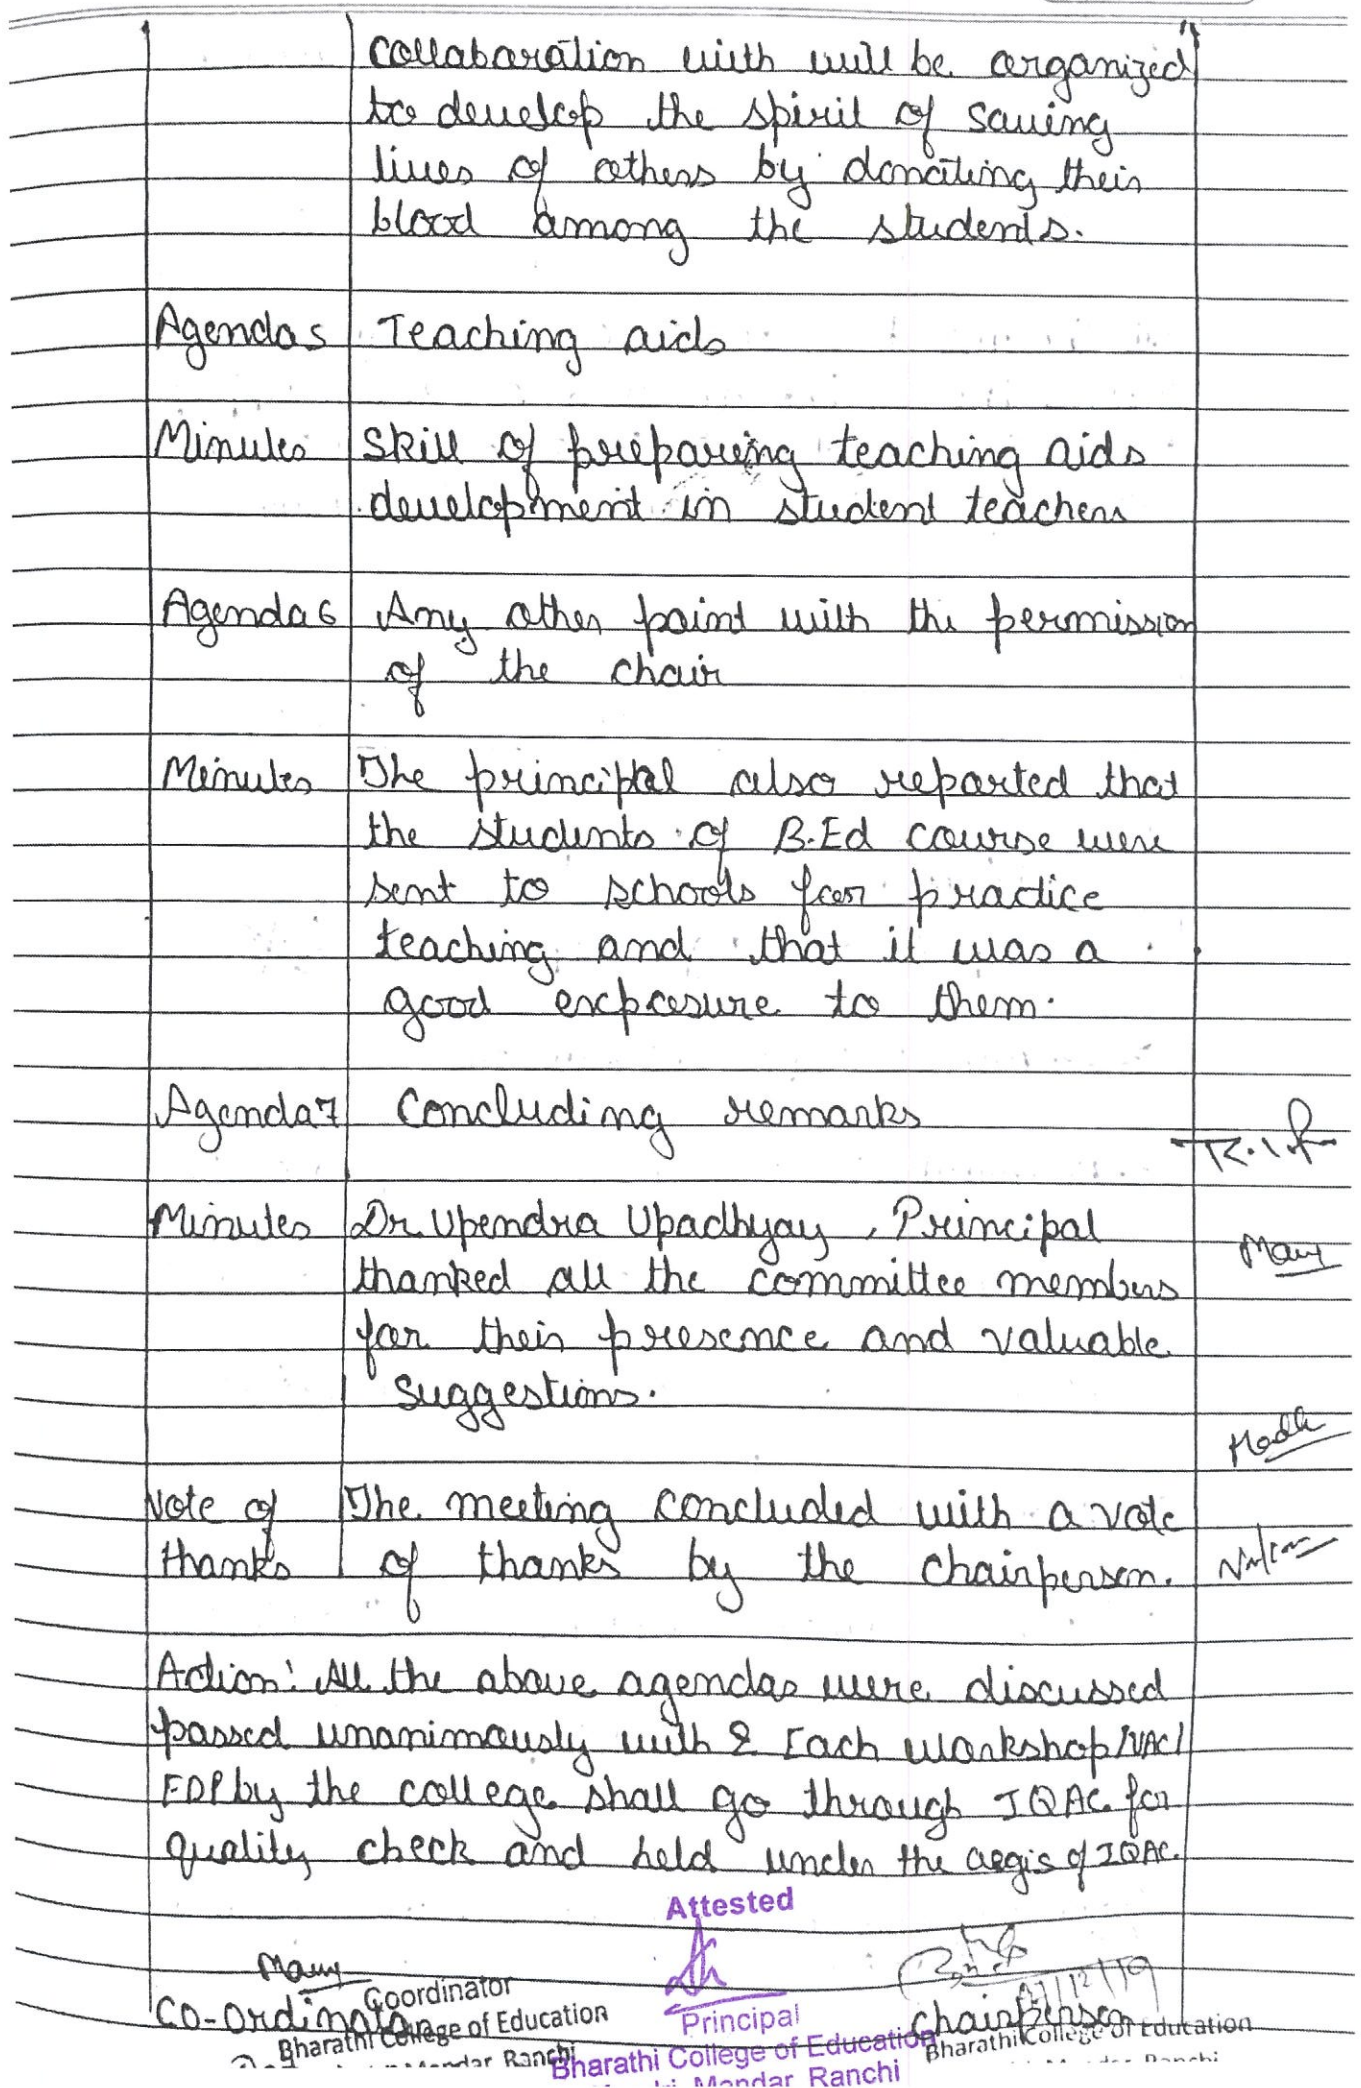 collaboration with will be organized
to develop the spirit of saving
lives of others by donating their
blood among the students.
Agenda 5 Teaching aids
Minutes Skill of preparing teaching aids
development in student teachers
Agenda 6 Any other point with the permission
of the chair
Minutes The principal also reported that
the students of B.Ed course were
sent to schools for practice
teaching and that it was a
good exposure to them.
Agenda 7 Concluding remarks
Minutes Dr. Upendra Upadhyay, Principal
thanked all the committee members
for their presence and valuable
suggestions.
Vote of The meeting concluded with a vote
thanks of thanks by the chairperson.
Action: All the above agendas were discussed
passed unanimously with & Each workshop/VAC/
FDP by the college shall go through IQAC for
quality check and held under the aegis of IQAC.
Attested
Coordinator
Co-ordinator
Bharathi College of Education
Mandar Ranchi
Principal
Bharathi College of Education
Mandar Ranchi
/12/19
Chairperson
Bharathi College of Education
Ranchi